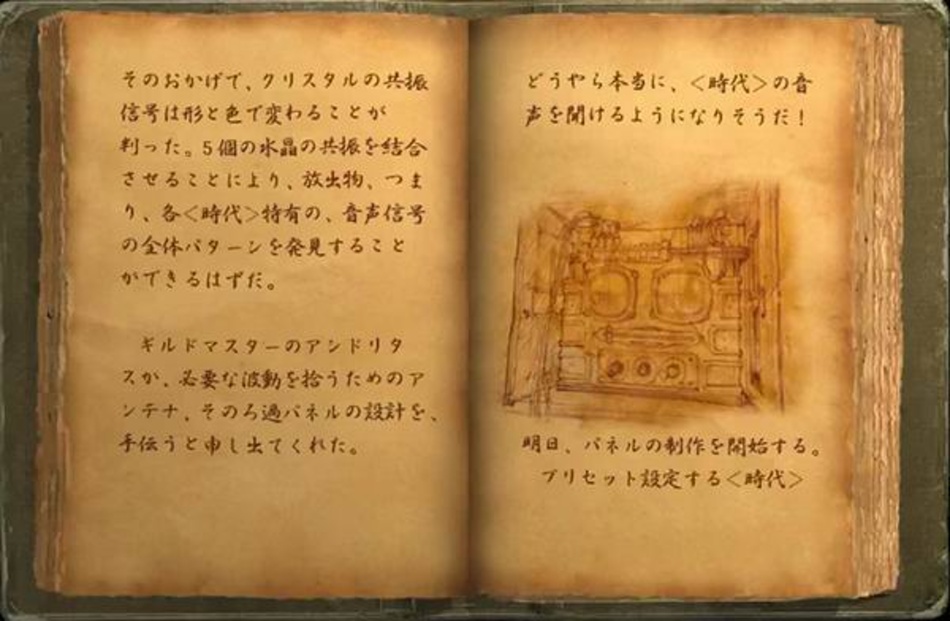 そのおかげで、クリスタルの共振
信号は形と色で変わることが
判った。5個の水晶の共振を結合
させることにより、放出物、つま
り、各<時代>特有の、音声信号
の全体パターンを発見すること
ができるはずだ。
ギルドマスターのアンドリタ
スが、必要な波動を拾うためのア
ンテナ、そのろ過パネルの設計を、
手伝うと申し出てくれた。
どうやら本当に、<時代>の音
声を聞けるようになりそうだ！
明日、パネルの制作を開始する。
プリセット設定する<時代>